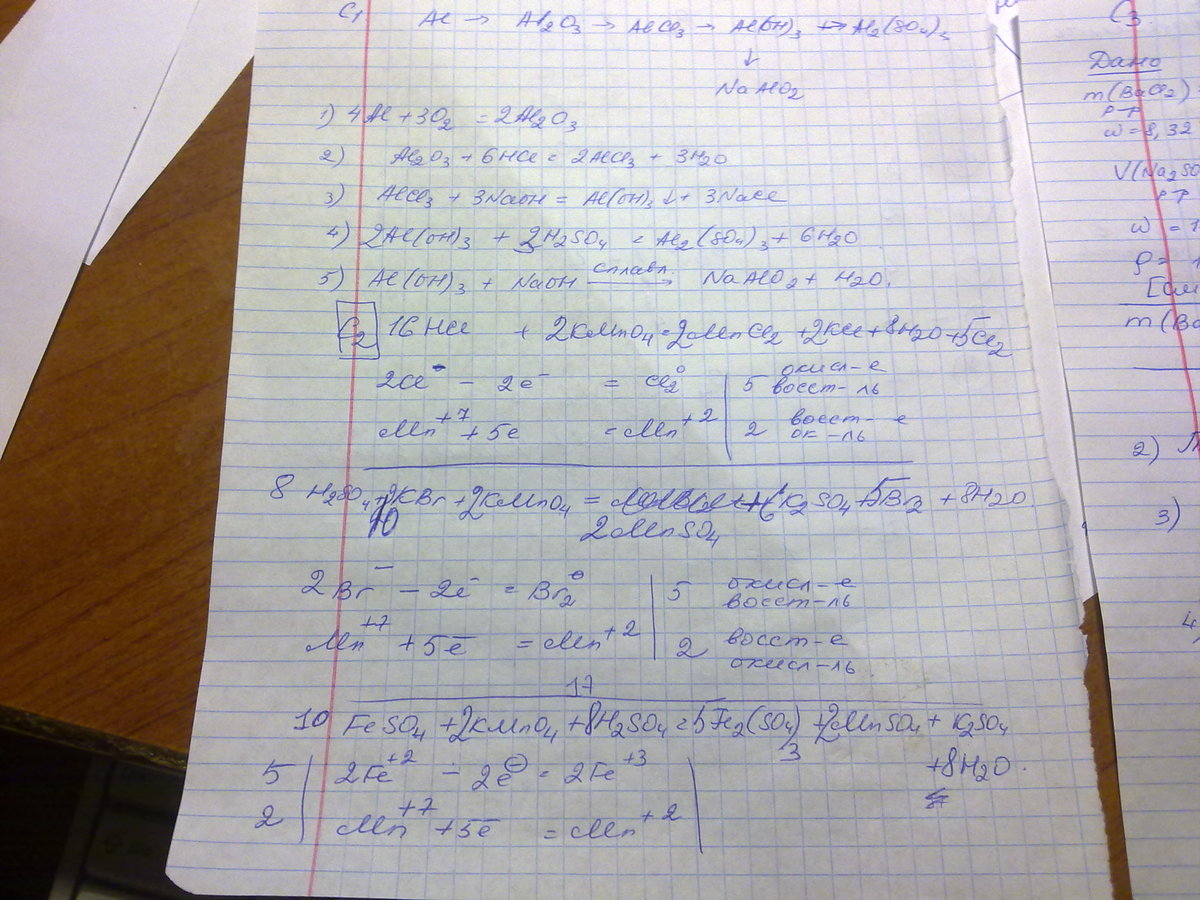 C1 Al → Al2O3 → AlCl3 → Al(OH)3 → Al2(SO4)3
↓
NaAlO2
1) 4Al + 3O2 = 2Al2O3
2) Al2O3 + 6HCl = 2AlCl3 + 3H2O
3) AlCl3 + 3NaOH = Al(OH)3↓ + 3NaCl
4) 2Al(OH)3 + 3H2SO4 = Al2(SO4)3 + 6H2O
сплавл.
5) Al(OH)3 + NaOH → NaAlO2 + H2O.
C2 16HCl + 2KMnO4 = 2MnCl2 + 2KCl + 8H2O + 5Cl2
окисл-е
2Cl⁻ – 2e⁻ = Cl2⁰ | 5 восст-ль
восст-е
Mn⁺⁷ + 5e = Mn⁺² | 2 ок-ль
8 H2SO4 + 10KBr + 2KMnO4 = 6K2SO4 + 5Br2 + 8H2O
2MnSO4
2Br⁻ – 2e⁻ = Br2⁰ | 5 окисл-е
восст-ль
Mn⁺⁷ + 5e⁻ = Mn⁺² | 2 восст-е
окисл-ль
17
10 FeSO4 + 2KMnO4 + 8H2SO4 = 5Fe2(SO4)3 + 2MnSO4 + K2SO4
+ 8H2O.
5 | 2Fe⁺² – 2e⁻ = 2Fe⁺³
2 | Mn⁺⁷ + 5e⁻ = Mn⁺²
C3.
Дано
m(BaCl2)
р-р
ω = 8,32
V(Na2SO
р-р
ω = 1
ρ = 1
m(Ba
2)
3)
4